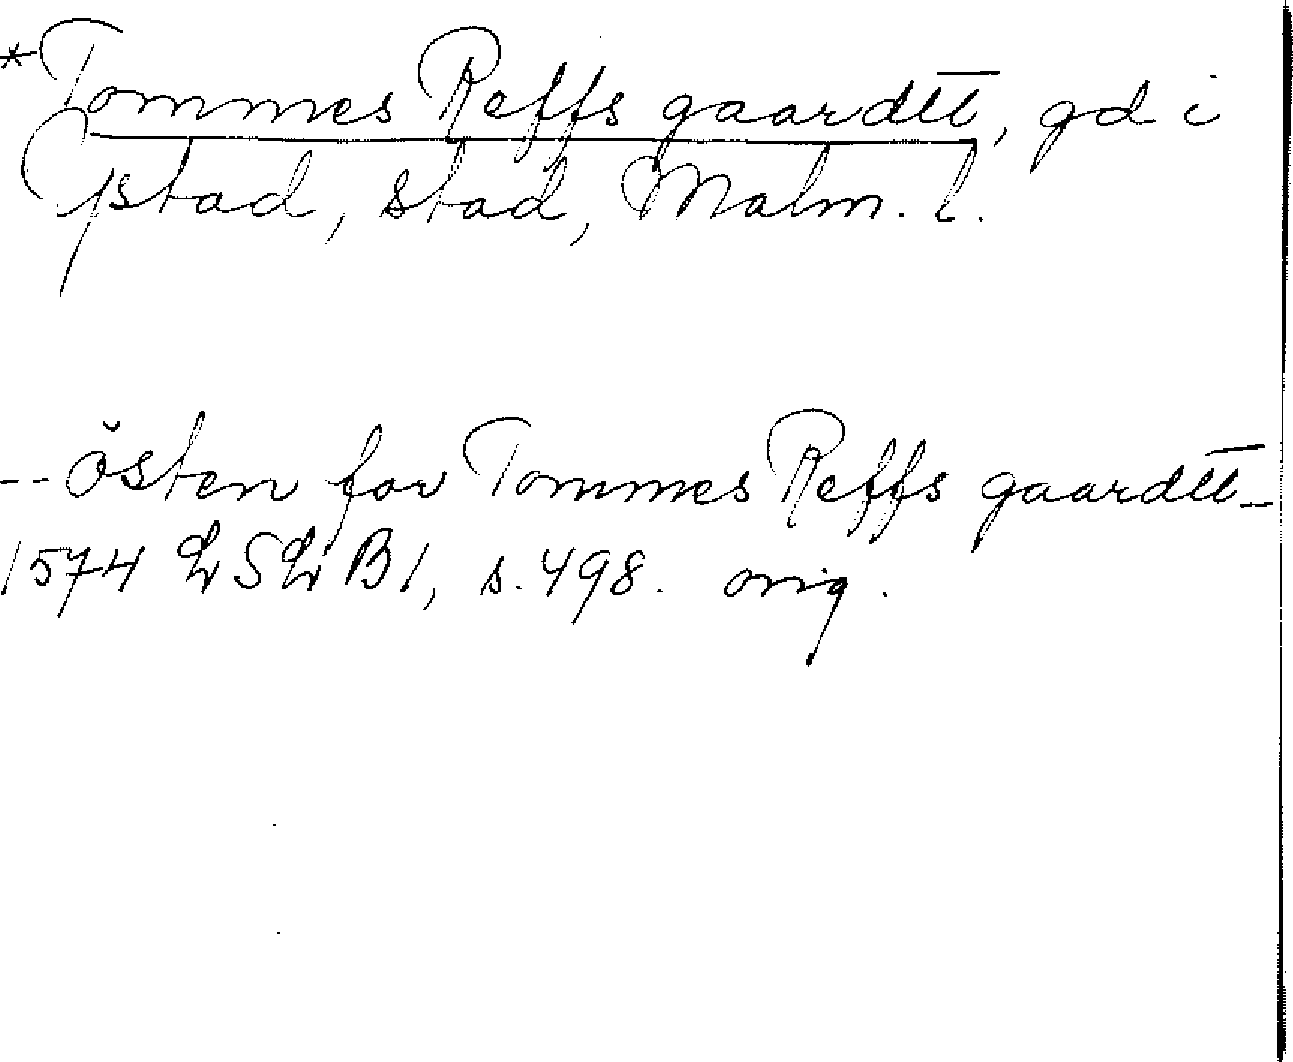 *Tommes Reffs gaardtt, gd i
Ystad, stad, Malm. l.
-- östen for Tommes Reffs gaardtt --
1574 LSL B1, s. 498. orig.